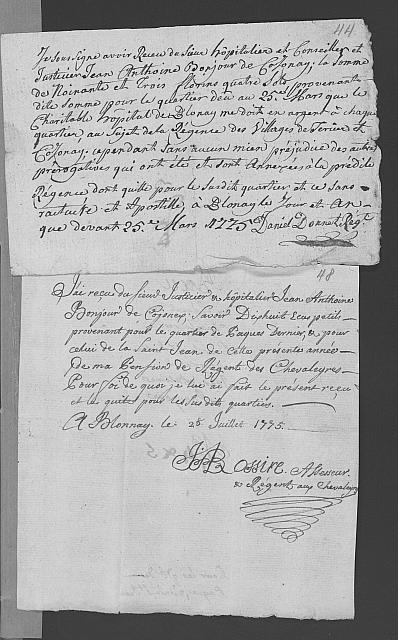 44
Je Soussigné avoir Receu du Sieur hôpitalier et Conseiller et
Justicier Jean Anthoine Bonjour de Cojonay, la Somme
de Nonante et Trois florins quatre Sols provenant
dite Somme pour le quartier deu au 25e Mars que le
Charitable hôpital de Blonay me doit en argent à chaque
quartier au Sujet de la Régence des Villages de Tercier et
Cojonay, cependant Sans aucun mien préjudice des autres
prérogatives qui ont été et sont Annexées à la prédite
Régence dont quitte pour le Susdit quartier et ce Sans
et Apostille, à Blonay le Jour et An
que devant 25e Mars 1775. Daniel Régt
48
J'ai reçu du Sieur Justicier & hôpitalier Jean Anthoine
Bonjour de Cojonay, Savoir Dixhuit Ecus petits
provenant pour le quartier de Paques Dernier, & pour
celui de la Saint Jean de Cette presente année
de ma Pension de Régent des Chevaleyres
Pour foi de quoi je lui ai fait le présent reçu
et le quite pour les Susdits quartiers.
A Blonnay le 26 Juillet 1775
Assesseur
& Régent aux Chevaleyres